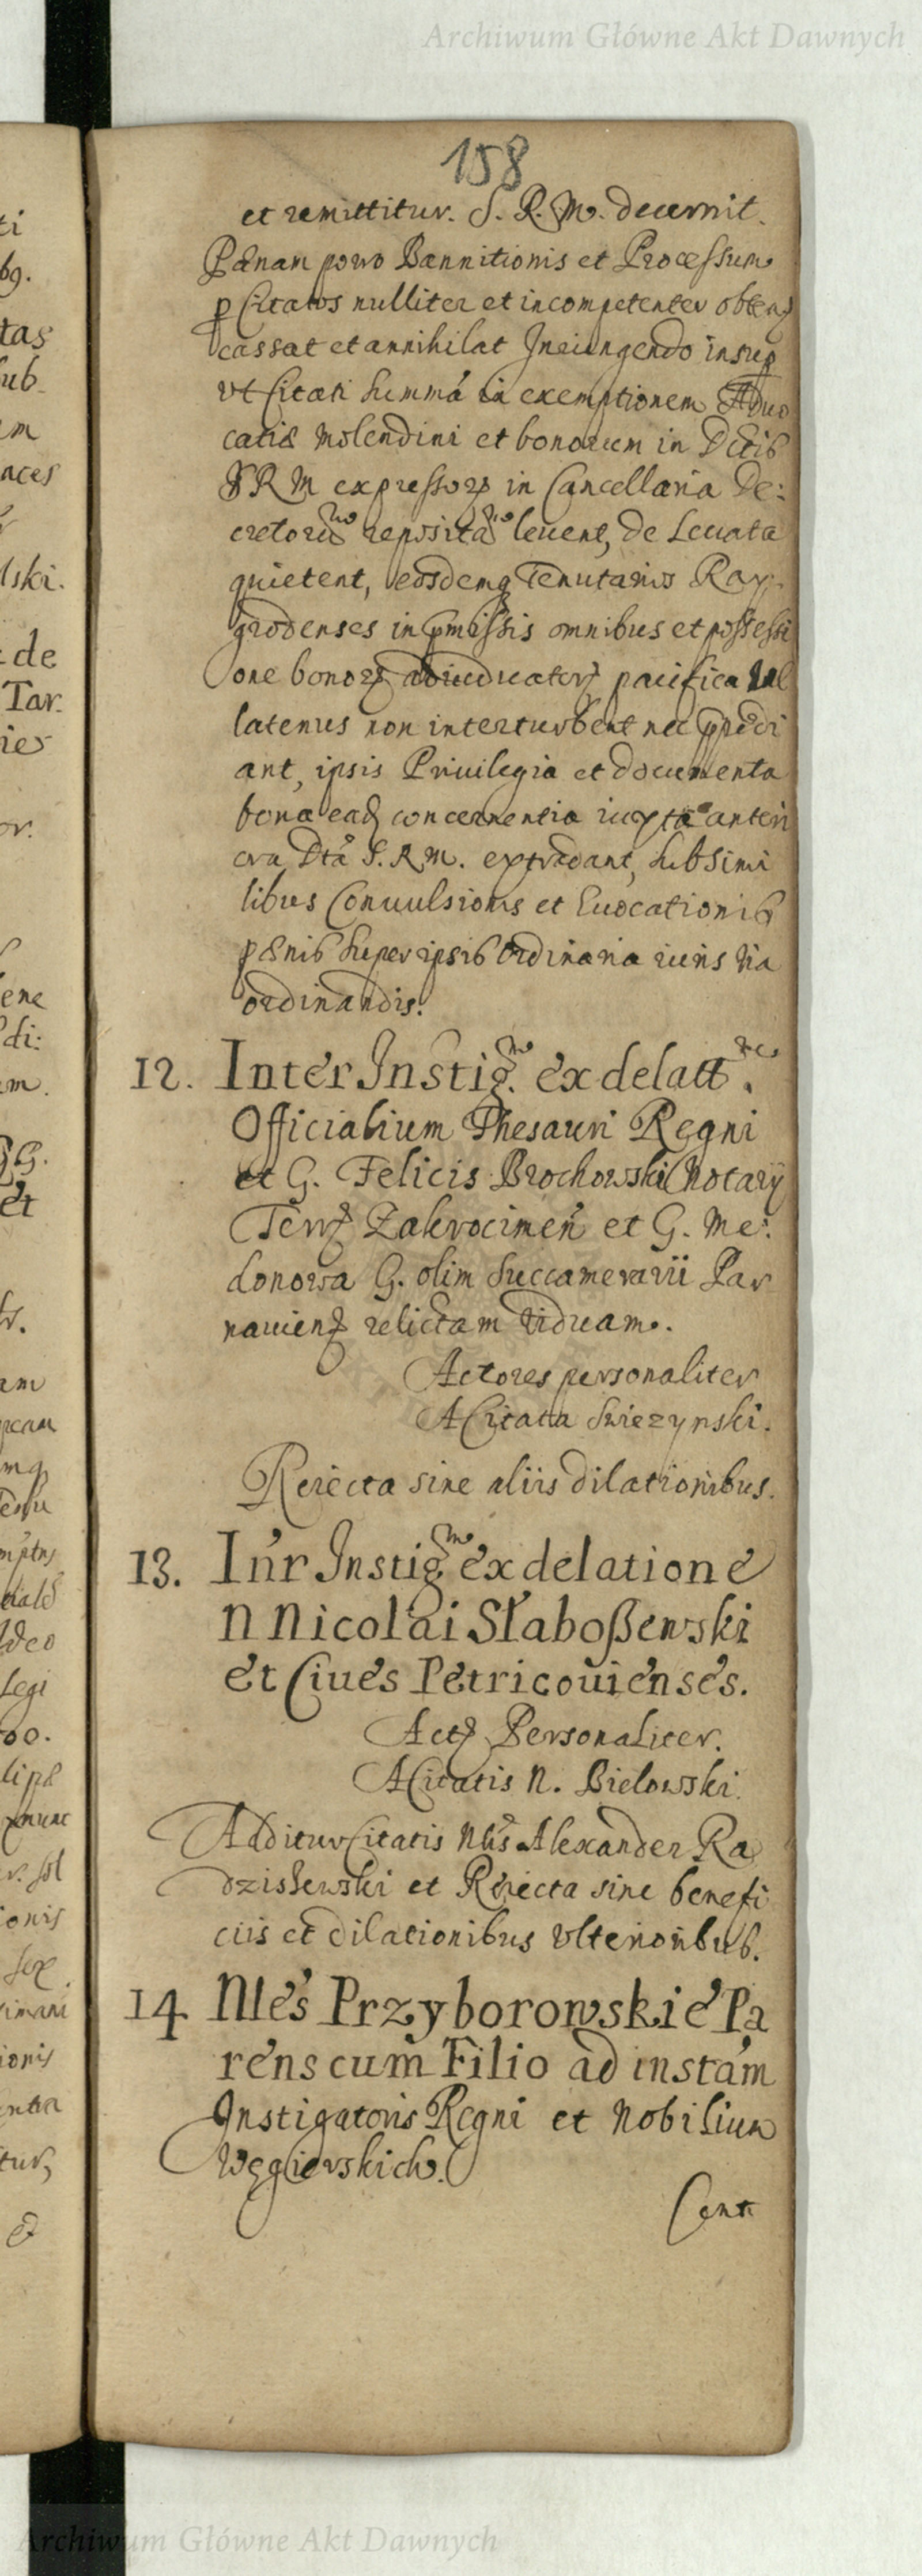 Archiwum Główne Akt Dawnych
158
et remittitur. S. R. M. decernit.
Pænam porro Bannitionis et Processum
p Citatos nulliter et incompetenter obten
cassat et annihilat Iniungendo insup
vt Citati summã in exemptionem Aduo
catiæ molendini et bonorum in Dctis
S R M expressorz in Cancellaria De:
cretorũ repositã leuent, de Leuata
quietent, eosdemq Tenutarios Ray:
grodenses in pmissis omnibus et possessi
one bonorz adiudicatorz pacifica
latenus non interturbent nec ppedi
ant, ipsis Priuilegia et documenta
bona eadẽ concernentia iuxta anteri
ora Dtã S. R M. extradant, sub simi
libus Conuulsionis et Euocationis
pænis super ipsis ordinaria iuris via
ordinandis.
12. Inter Instig.m ex delatt.ne
Officialium Thesauri Regni
et G. Felicis Brochowski Notarij
Terrz Zakrocimeñ et G. Me:
donowa G. olim Succamerarii Par
nauienz relictam viduam.
Actores personaliter
A Citata Swiezynski.
Reiecta sine aliis dilationibus.
13. Iñr Instig.m ex delatione
N Nicolai Słaboßewski
et Ciues Petricouienses.
Actz Personaliter.
A Citatis N. Bielowski.
Additur Citatis Nlis Alexander Ra
dziszewski et Reiecta sine benefi
ciis et dilationibus vlterioribus.
14 Nles Przyborowskie Pa
rens cum Filio ad instãm
Instigatoris Regni et Nobilium
Węgierskich.
Cont
Archiwum Główne Akt Dawnych